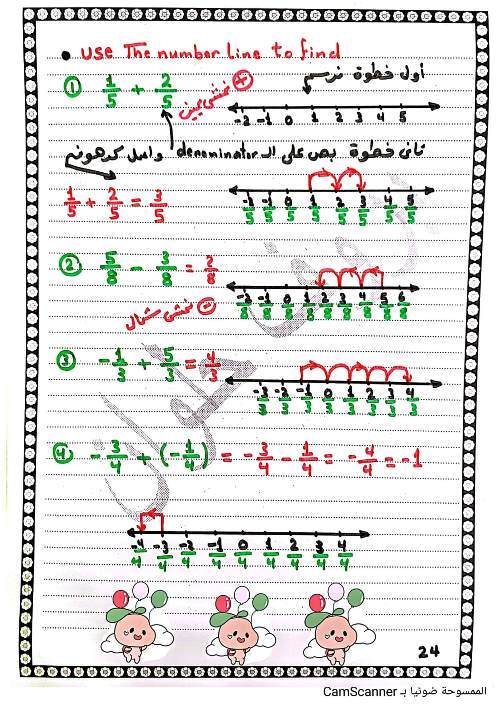 • USE The number Line to find
① 1/5 + 2/5
⊕ نمشى يمين
أول خطوة نرسم
-2 -1 0 1 2 3 4 5
تانى خطوة بص على الـ denominator واعمل كدهونه
1/5 + 2/5 = 3/5
-2/5 -1/5 0/5 1/5 2/5 3/5 4/5 5/5
② 5/8 - 3/8 = 2/8
⊖ نمشى شمال
-2/8 -1/8 0/8 1/8 2/8 3/8 4/8 5/8 6/8
③ -1/3 + 5/3 = 4/3
-3/3 -2/3 -1/3 0/3 1/3 2/3 3/3 4/3
④ -3/4 + (-1/4) = -3/4 - 1/4 = -4/4 = -1
-4/4 -3/4 -2/4 -1/4 0/4 1/4 2/4 3/4 4/4
24
الممسوحة ضوئيا بـ CamScanner